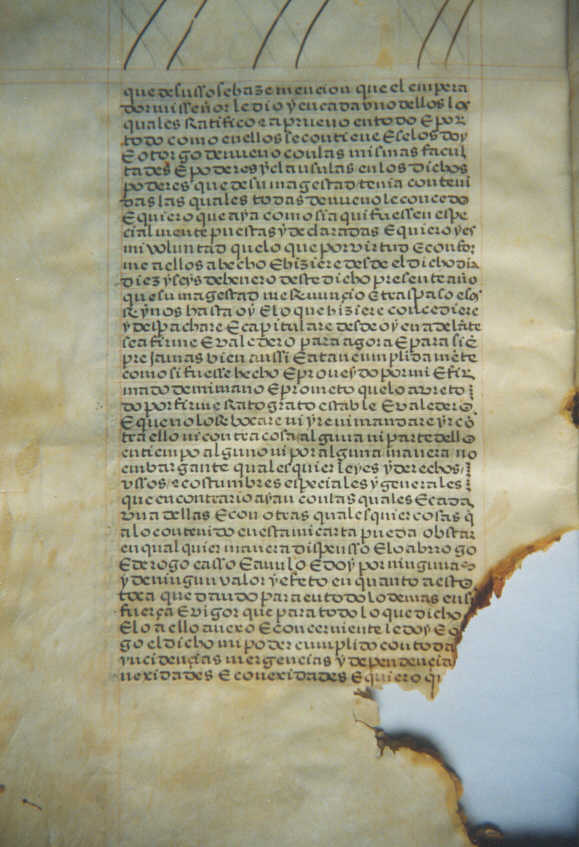 que desusso se haze mencion que el empera
dor mi señor le dio y en cada vno dellos los
quales Ratifico e apruevo en todo E por
todo como en ellos se contiene E se los doy
E otorgo de nuevo con las mismas facul
tades E poderes y clausulas en los dichos
poderes que de su magestad tenia conteni
das las quales todas de nuevo le concedo
E quiero que aya como si aqui fuessen espe
cialmente puestas y declaradas E quiero y es
mi voluntad que lo que por virtud E confor
me a ellos a hecho E hiziere desde el dicho dia
diez y seys de henero deste dicho presente año
que su magestad me Renunçio e traspaso esos
Reynos hasta oy E lo que hiziere concediere
y despachare E capitulare desde oy en adelãte
sea firme E valedero para agora E para siẽ
pre jamas bien anssi E a tan cumplidamẽte
como si fuesse hecho E proveydo por mi E fir
mado de mi mano E prometo que lo avre to
do por firme Rato grato estable E valedero
E que no lo Rebocare ni yre ni mandare yr cõ
tra ello ni contra cosa alguna ni parte dello
en tiempo alguno ni por alguna manera no
embargante qualesquier leyes y derechos
vssos e costumbres especiales y generales
que en contrario ayan con las quales E cada
vna dellas E con otras qualesquier cosas q̃
a lo contenido en esta mi carta pueda obstar
en qualquier manera dispensso E lo abrrogo
E derogo casso E anulo E doy por ninguna
y de ningun valor y efeto en quanto a esto
toca quedando para en todo lo demas en su
fuerça E vigor que para todo lo que dicho
E lo a ello anexo E concerniente le doy E o
go el dicho mi poder cumplido con toda
yncidençias mergencias y dependencia
nexidades E conexidades E quiero q